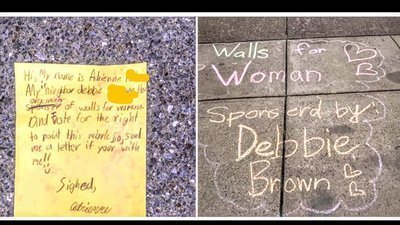 Hi, My name is Adrienne
My debbie
of walls for woman
and vote for the right
to paint this so, send
me a letter if your with
me!!
Sighed,
Adrienne
Walls for
Woman
Sponserd by:
Debbie
Brown